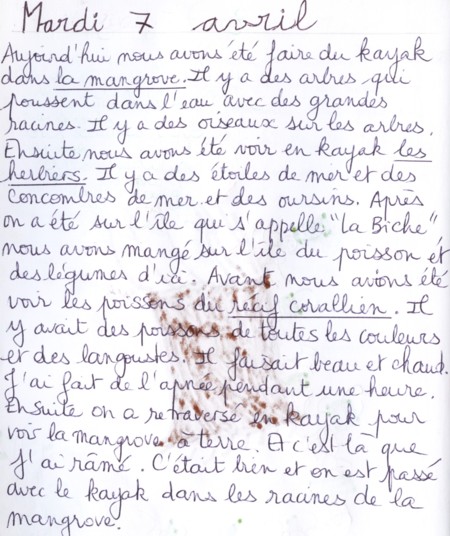 Mardi 7 avril
Aujourd'hui nous avons été faire du kayak
dans la mangrove. Il y a des arbres qui
poussent dans l'eau avec des grandes
racines. Il y a des oiseaux sur les arbres.
Ensuite nous avons été voir en kayak les
herbiers. Il y a des étoiles de mer et des
concombres de mer et des oursins. Après
on a été sur l'île qui s'appelle "La Biche",
nous avons mangé sur l'île du poisson et
des légumes d'ici. Avant nous avions été
voir les poissons du récif corallien. Il
y avait des poissons de toutes les couleurs
et des langoustes. Il faisait beau et chaud.
J'ai fait de l'apnée pendant une heure.
Ensuite on a retraversé en kayak pour
voir la mangrove à terre. Et c'est là que
J'ai râmé. C'était bien et on est passé
avec le kayak dans les racines de la
mangrove.